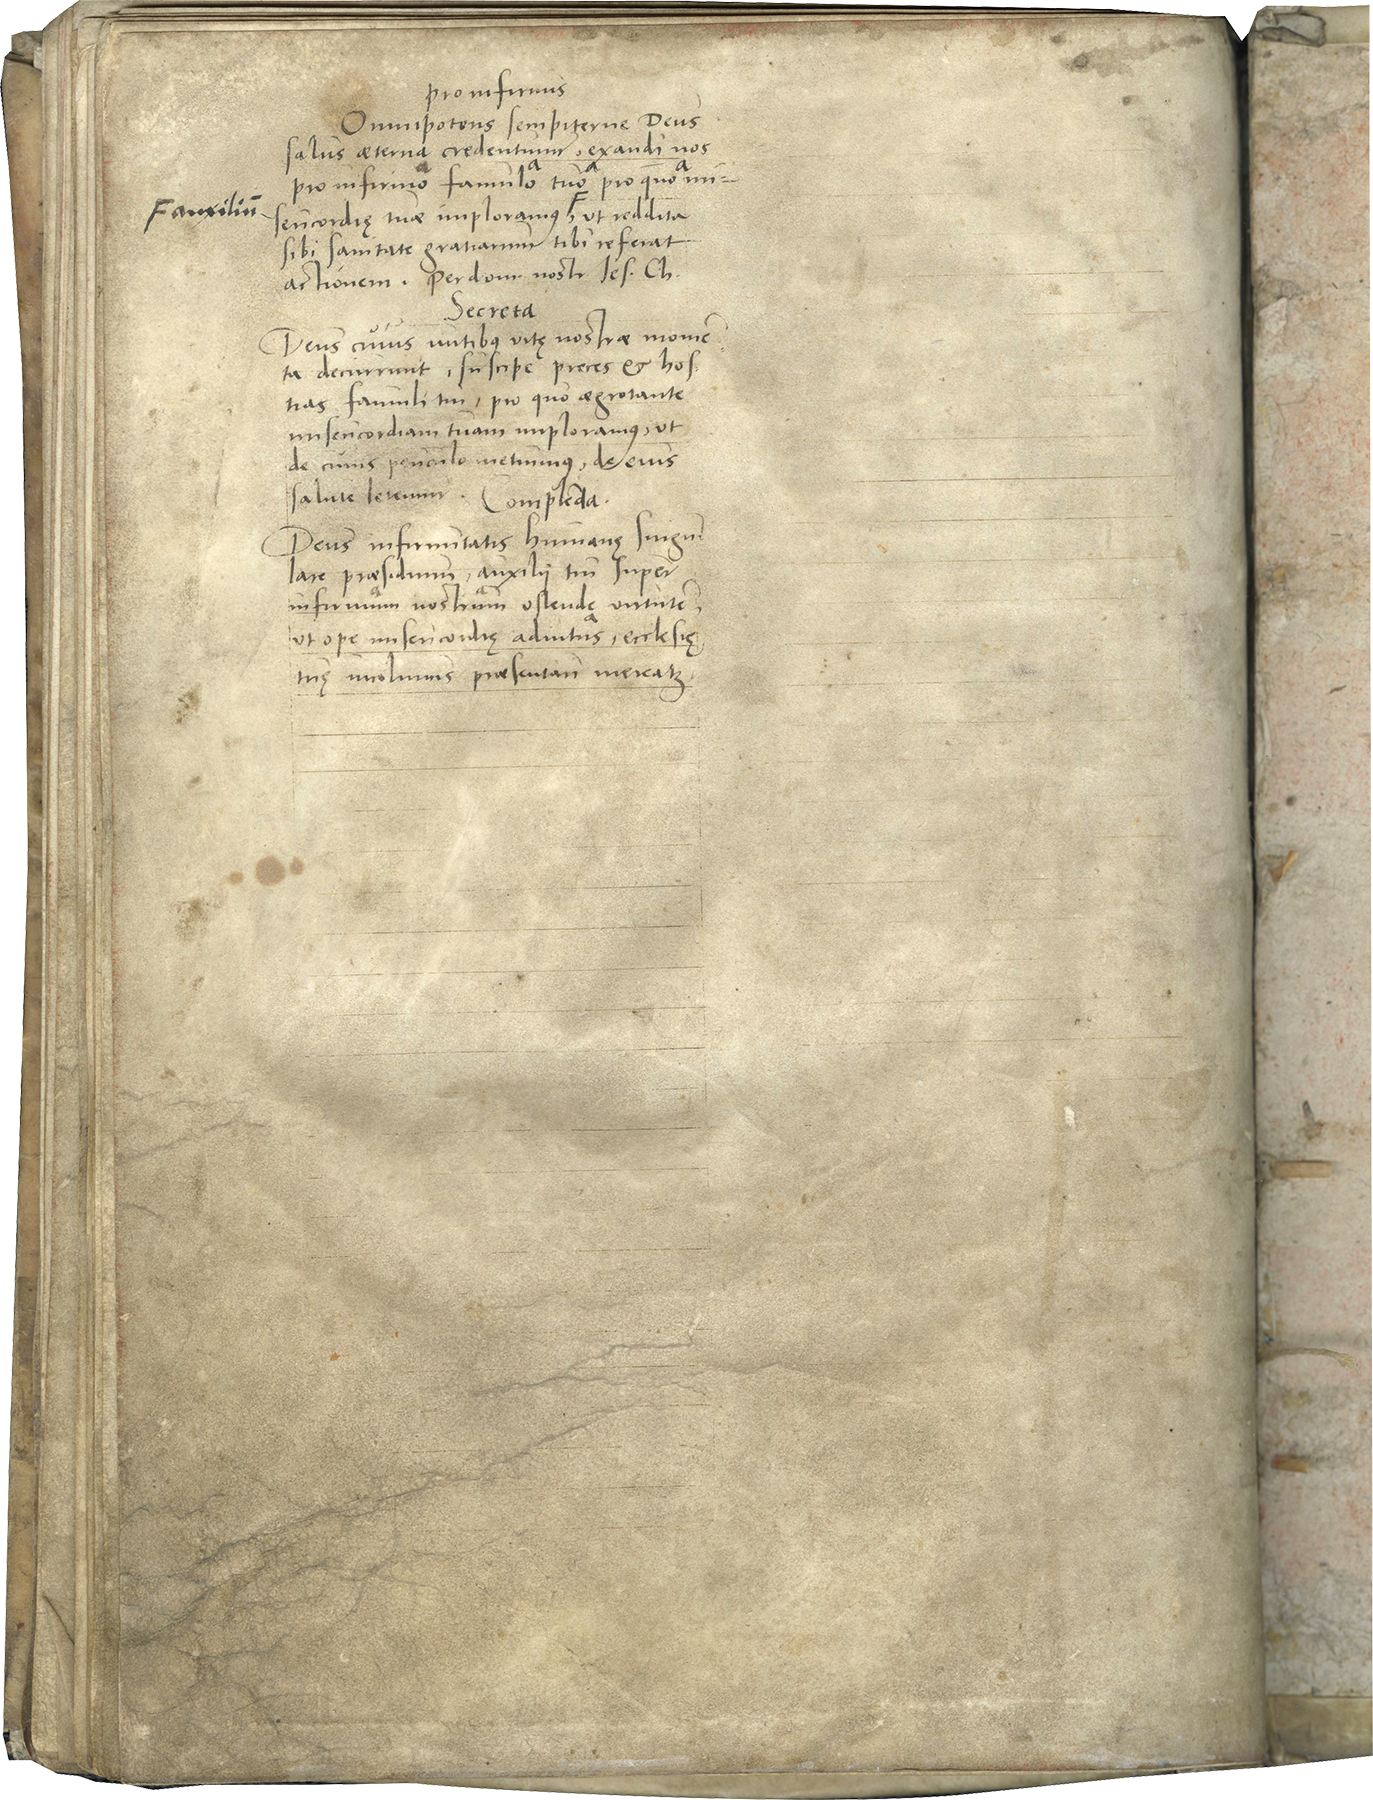 pro infirmis
Omnipotens sempiterne Deus
salus æterna credentium, exaudi nos
pro infirmo famulo tuo pro quo mi=
F auxiliū
sericordię tuæ imploramus, F ut reddita
sibi sanitate gratiarum tibi referat
actionem. Per dom. nostr Ies. Ch.
Secreta
Deus cuius nutibus vitę nostræ momē
ta decurrunt, suscipe preces & hos
tias famuli tui, pro quo ægrotante
misericordiam tuam imploramus, ut
de cuius periculo metuimus, de eius
salute letemur. Complēda.
Deus infirmitatis humanę singu
lare præsidium, auxilij tui super
infirmum nostrum ostende virtutē,
ut ope misericordię adiutus, ecclesię
tuę incolumis præsentari mereatꝛ